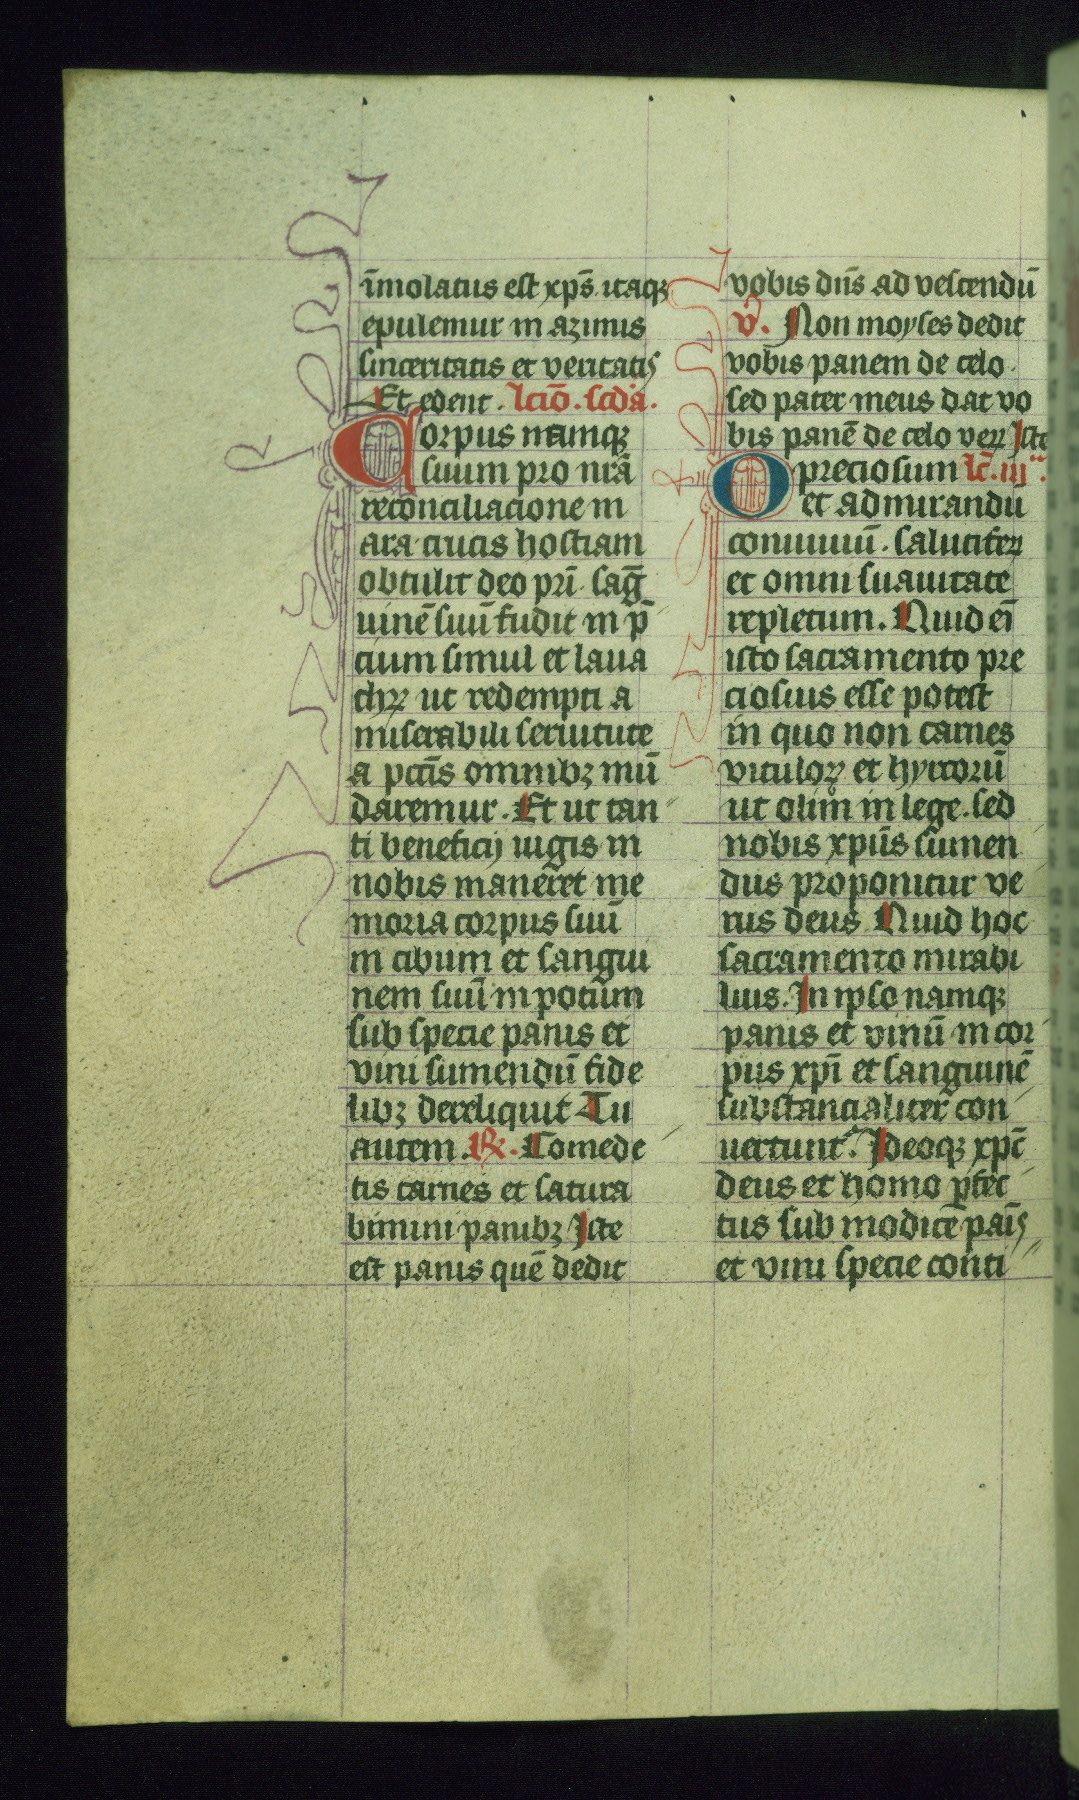 īmolatus est xp̄s. itaqꝫ
epulemur in azimis
sinceritatis et veritatis
Et edent. lc̄io. scd̄a.
Corpus namqꝫ
suum pro nr̄a
reconciliacione in
ara crucis hostiam
obtulit deo pr̄i. sag̅
uinē suū fudit in p̄
cium simul et laua
chꝝ ut redempti a
miserabili seruitute
a pctīs omnibꝫ mū
daremur. Et ut tan
ti beneficij iugis in
nobis maneret me
moria corpus suū
in cibum et sangui
nem suū in potum
sub specie panis et
vini sumendū fide
libꝫ dereliquit Tu
autem. ℟. Comede
tis carnes et satura
bimini panibꝫ Iste
est panis quē dedit
vobis dn̄s ad vescendū
v̄. Non moyses dedit
vobis panem de celo.
sed pater meus dat vo
bis panē de celo veꝝ Iste
O preciosum lc̄. iij.
et admirandū
conuiuiū. salutifeꝝ
et omni suauitate
repletum. Quid eī
isto sacramento pre
ciosius esse potest
in quo non carnes
vituloꝝ et hyrcorū
ut olim in lege. sed
nobis xpūs sumen
dus proponitur ve
rus deus Quid hoc
sacramento mirabi
lius. In ipso namqꝫ
panis et vinū in cor
pus xpī et sanguinē
substancialiter con
uertunt᷑. Ideoqꝫ xpc̄
deus et homo ꝑfec
tus sub modice pais
et vini specie conti